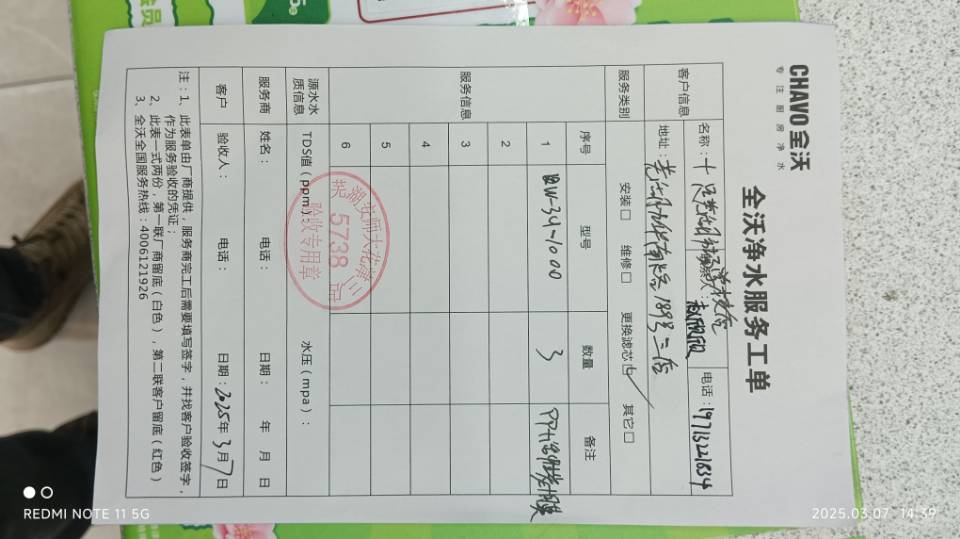 CHAVO全沃
专注厨房净水
全沃净水服务工单
客户信息
名称：十足
联系人：
电话：19713221834
地址：
189号二店
服务类别
安装□ 维修□ 更换滤芯☑ 其它□
服务信息
序号 型号 数量 备注
1 BW-34-1000 3
2
3
4
5
6
源水水质信息
TDS值（ppm）： 水压（mpa）：
服务商 姓名： 电话： 日期： 年 月 日
客户 验收人： 电话： 日期：2025年3月7日
注：1、此表单由厂商提供，服务商完工后需要填写签字，并找客户验收签字，
作为服务验收的凭证；
2、此表一式两份，第一联厂商留底（白色），第二联客户留底（红色）
3、全沃全国服务热线：4006121926
芜湖安师大花津二店
5738
验收专用章
REDMI NOTE 11 5G
2025.03.07 14:39